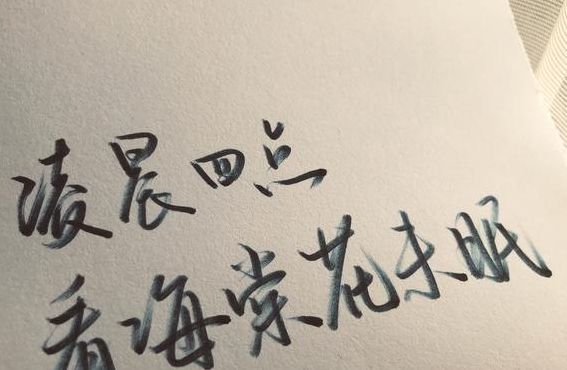 凌晨四点
看海棠花未眠